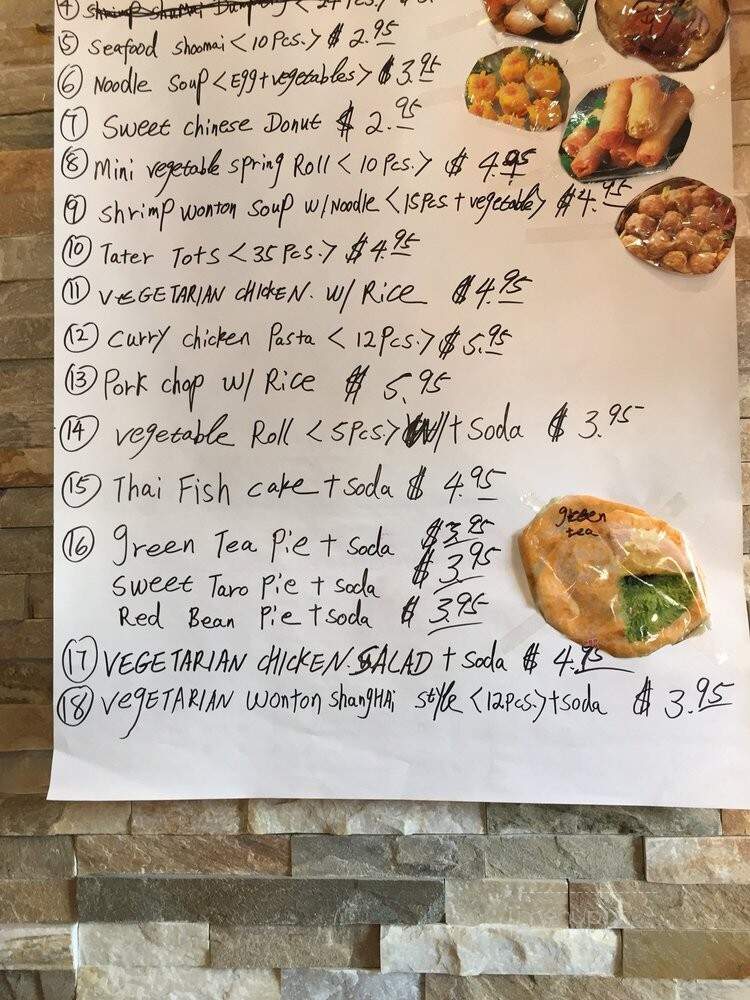 ④ Shrimp Shumai Dumpling <24 Pcs.> $
⑤ Seafood Shoomai <10 Pcs.> $ 2.95
⑥ Noodle Soup <Egg+vegetables> $ 3.95
⑦ Sweet chinese Donut $ 2.95
⑧ Mini vegetable spring Roll <10 Pcs.> $ 4.95
⑨ shrimp wonton soup w/Noodle <15Pcs + vegetable> $4.95
⑩ Tater Tots <35 Pcs.> $4.95
⑪ VEGETARIAN CHICKEN. w/ Rice $4.95
⑫ Curry chicken Pasta <12Pcs.> $5.95
⑬ Pork chop w/ Rice $ 5.95
⑭ vegetable Roll <5Pcs.> W/+ Soda $ 3.95
⑮ Thai Fish cake + soda $ 4.95
⑯ green Tea Pie + soda $3.95
green tea
Sweet Taro Pie + soda $ 3.95
Red Bean Pie + soda $ 3.95
⑰ VEGETARIAN CHICKEN. SALAD + soda $ 4.95
⑱ VEGETARIAN wonton shangHAi style <12Pcs.>+soda $ 3.95